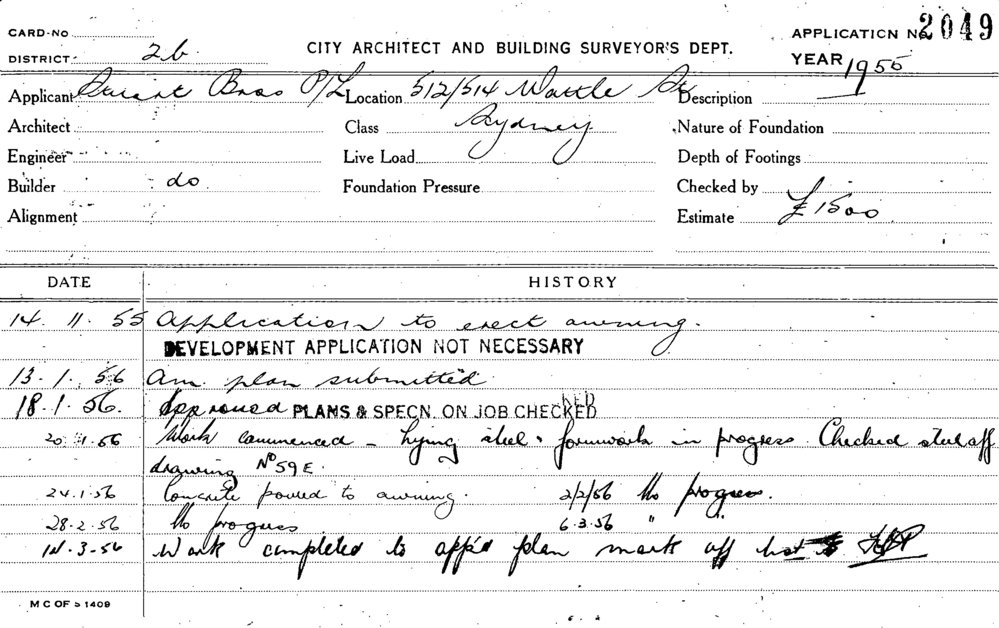 CARD-No
APPLICATION No 2049
DISTRICT 2b.
CITY ARCHITECT AND BUILDING SURVEYOR'S DEPT.
YEAR 1955
Applicant Bros P/L Location 512/514 Wattle St Description
Architect Class Sydney Nature of Foundation
Engineer Live Load Depth of Footings
Builder do Foundation Pressure Checked by
Alignment Estimate £1500
DATE HISTORY
14. 11. 55 Application to erect awning.
DEVELOPMENT APPLICATION NOT NECESSARY
13. 1. 56 Am. plan submitted
18. 1. 56. Approved PLANS & SPECN. ON JOB CHECKED
20.1.56 Work commenced - tying steel & formwork in progress. Checked steel off
drawing No 59E.
24.1.56 Concrete poured to awning. 2/2/56 No progress.
28.2.56 No progress 6.3.56 " "
14.3.56 Work completed to app'd plan mark off
M C OF S 1409